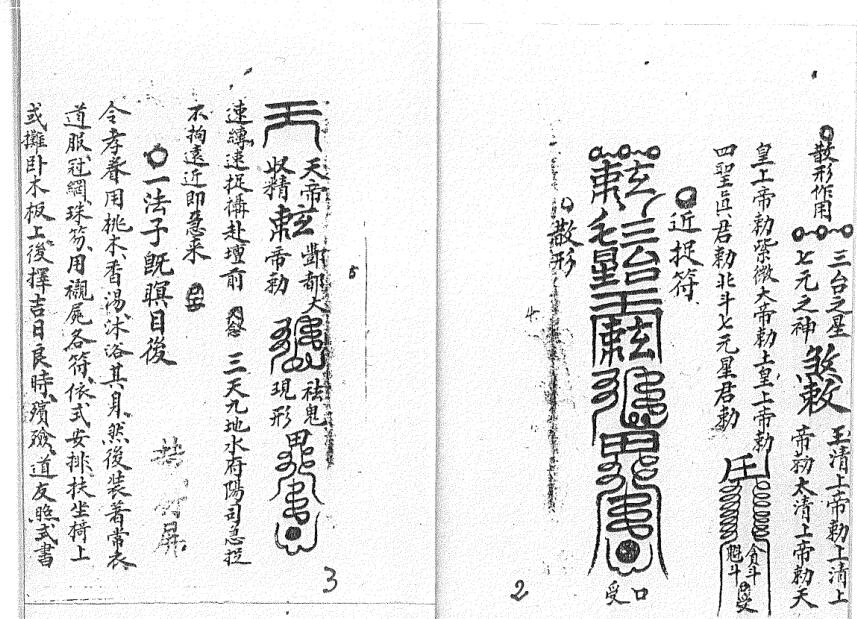 散形作用
三台之星
七元之神
煞敕
玉清上帝勅上清上
帝勅太清上帝勅天
皇上帝勅紫微大帝勅土皇上帝勅
四聖眞君勅北斗七元星君勅
貪斗
魁斗
受
近捉符
三台
星
口
受
散形
2
4
5
天帝
酆都大
収精
帝勅
祛鬼
現形
速縛速捉攝赴壇前
三天九地水府陽司急捉
不拘遠近即急来
一法子既瞑目後
令孝眷用桃木香湯沐浴其身然後装著常衣
道服冠網珠笏用襯屍各符依式安排扶坐椅上
或攤卧木板上後擇吉日良時殯殮道友照式書
3